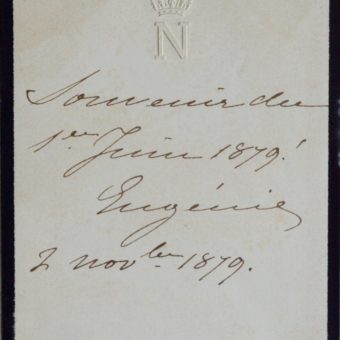 N
Souvenir du
1er Juin 1879!
Eugénie
2 novbre 1879.